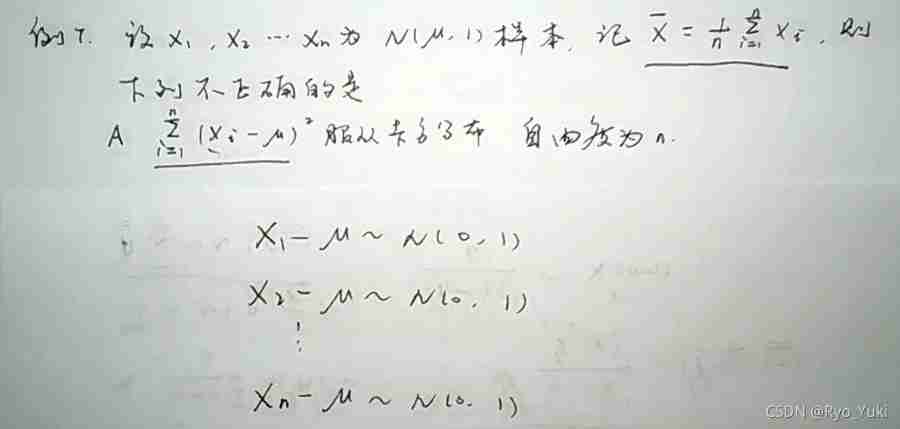 例7. 设 X₁, X₂ ⋯ Xn 为 N(μ, 1) 样本, 记 X̄ = 1/n ∑ⁿᵢ₌₁ Xᵢ, 则
下列不正确的是
A ∑ⁿᵢ₌₁ (Xᵢ - μ)² 服从卡方分布 自由度为 n.
X₁ - μ ~ N(0, 1)
X₂ - μ ~ N(0, 1)
⋮
Xn - μ ~ N(0, 1)
CSDN @Ryo_Yuki